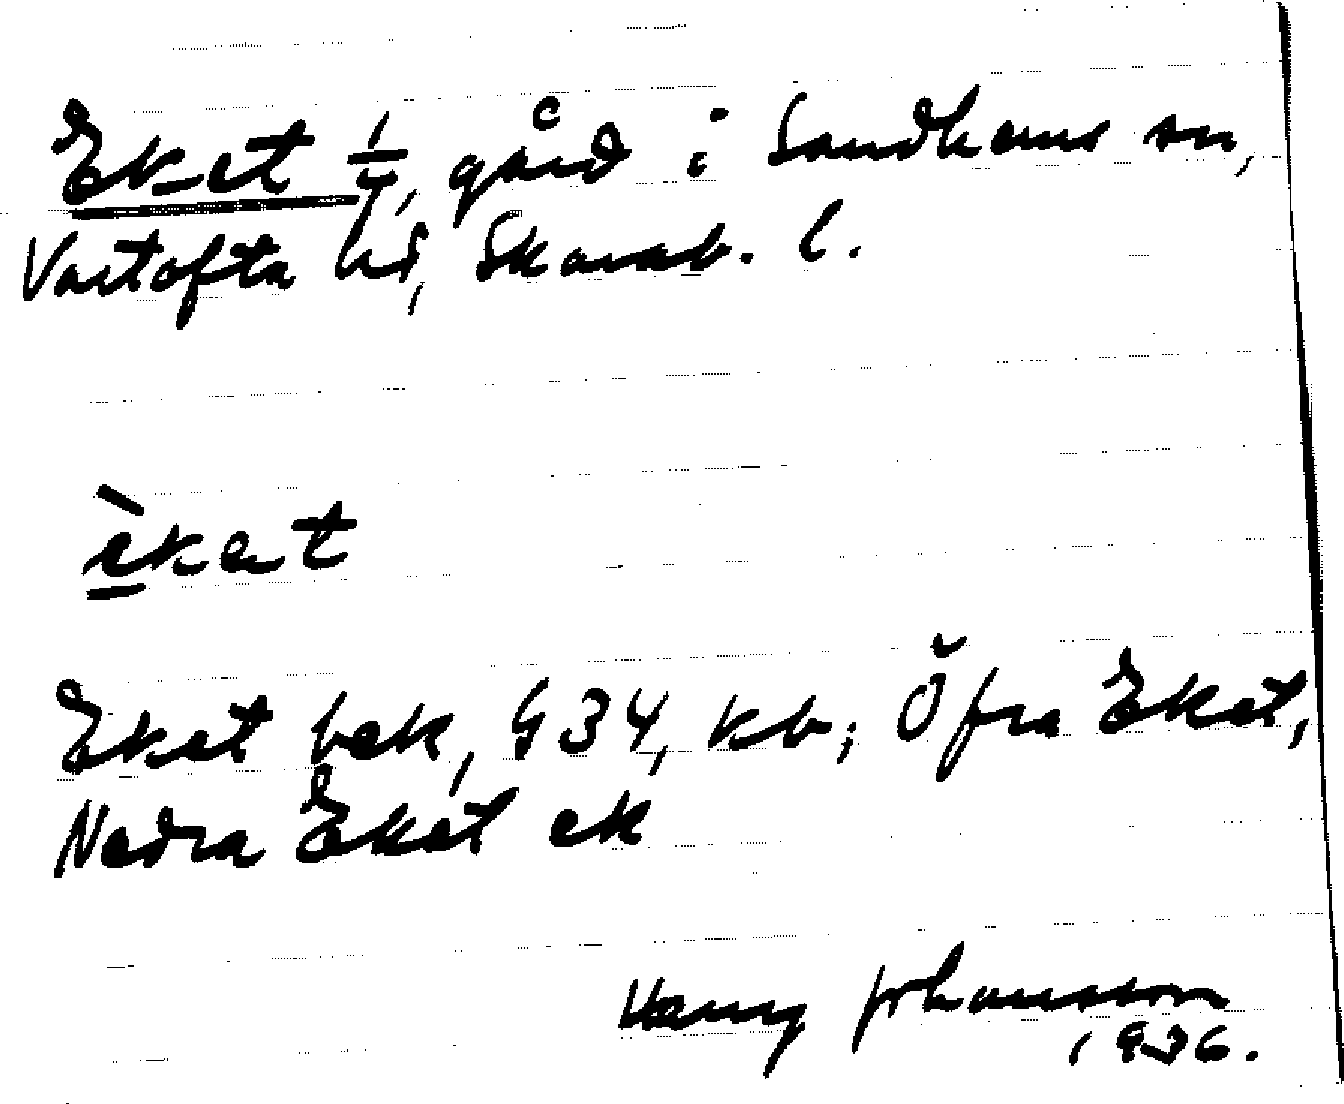 Eket 1/1, gård i Sandhems sn,
Vartofta hd, Skarab. l.
èkat
Eket bek, G34, kb; Öfra Eket,
Nedra Eket ek
Harry Johansson
1936.